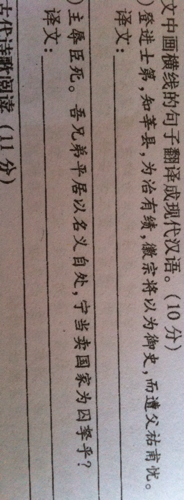 文中画横线的句子翻译成现代汉语。(10 分)
)登进士第,知莘县,为治有绩,徽宗将以为御史,而遭父祐甫忧。
译文:
)主辱臣死。吾兄弟平居以名义自处,宁当卖国家为囚孥乎?
译文:
古代诗歌阅读 (11 分)